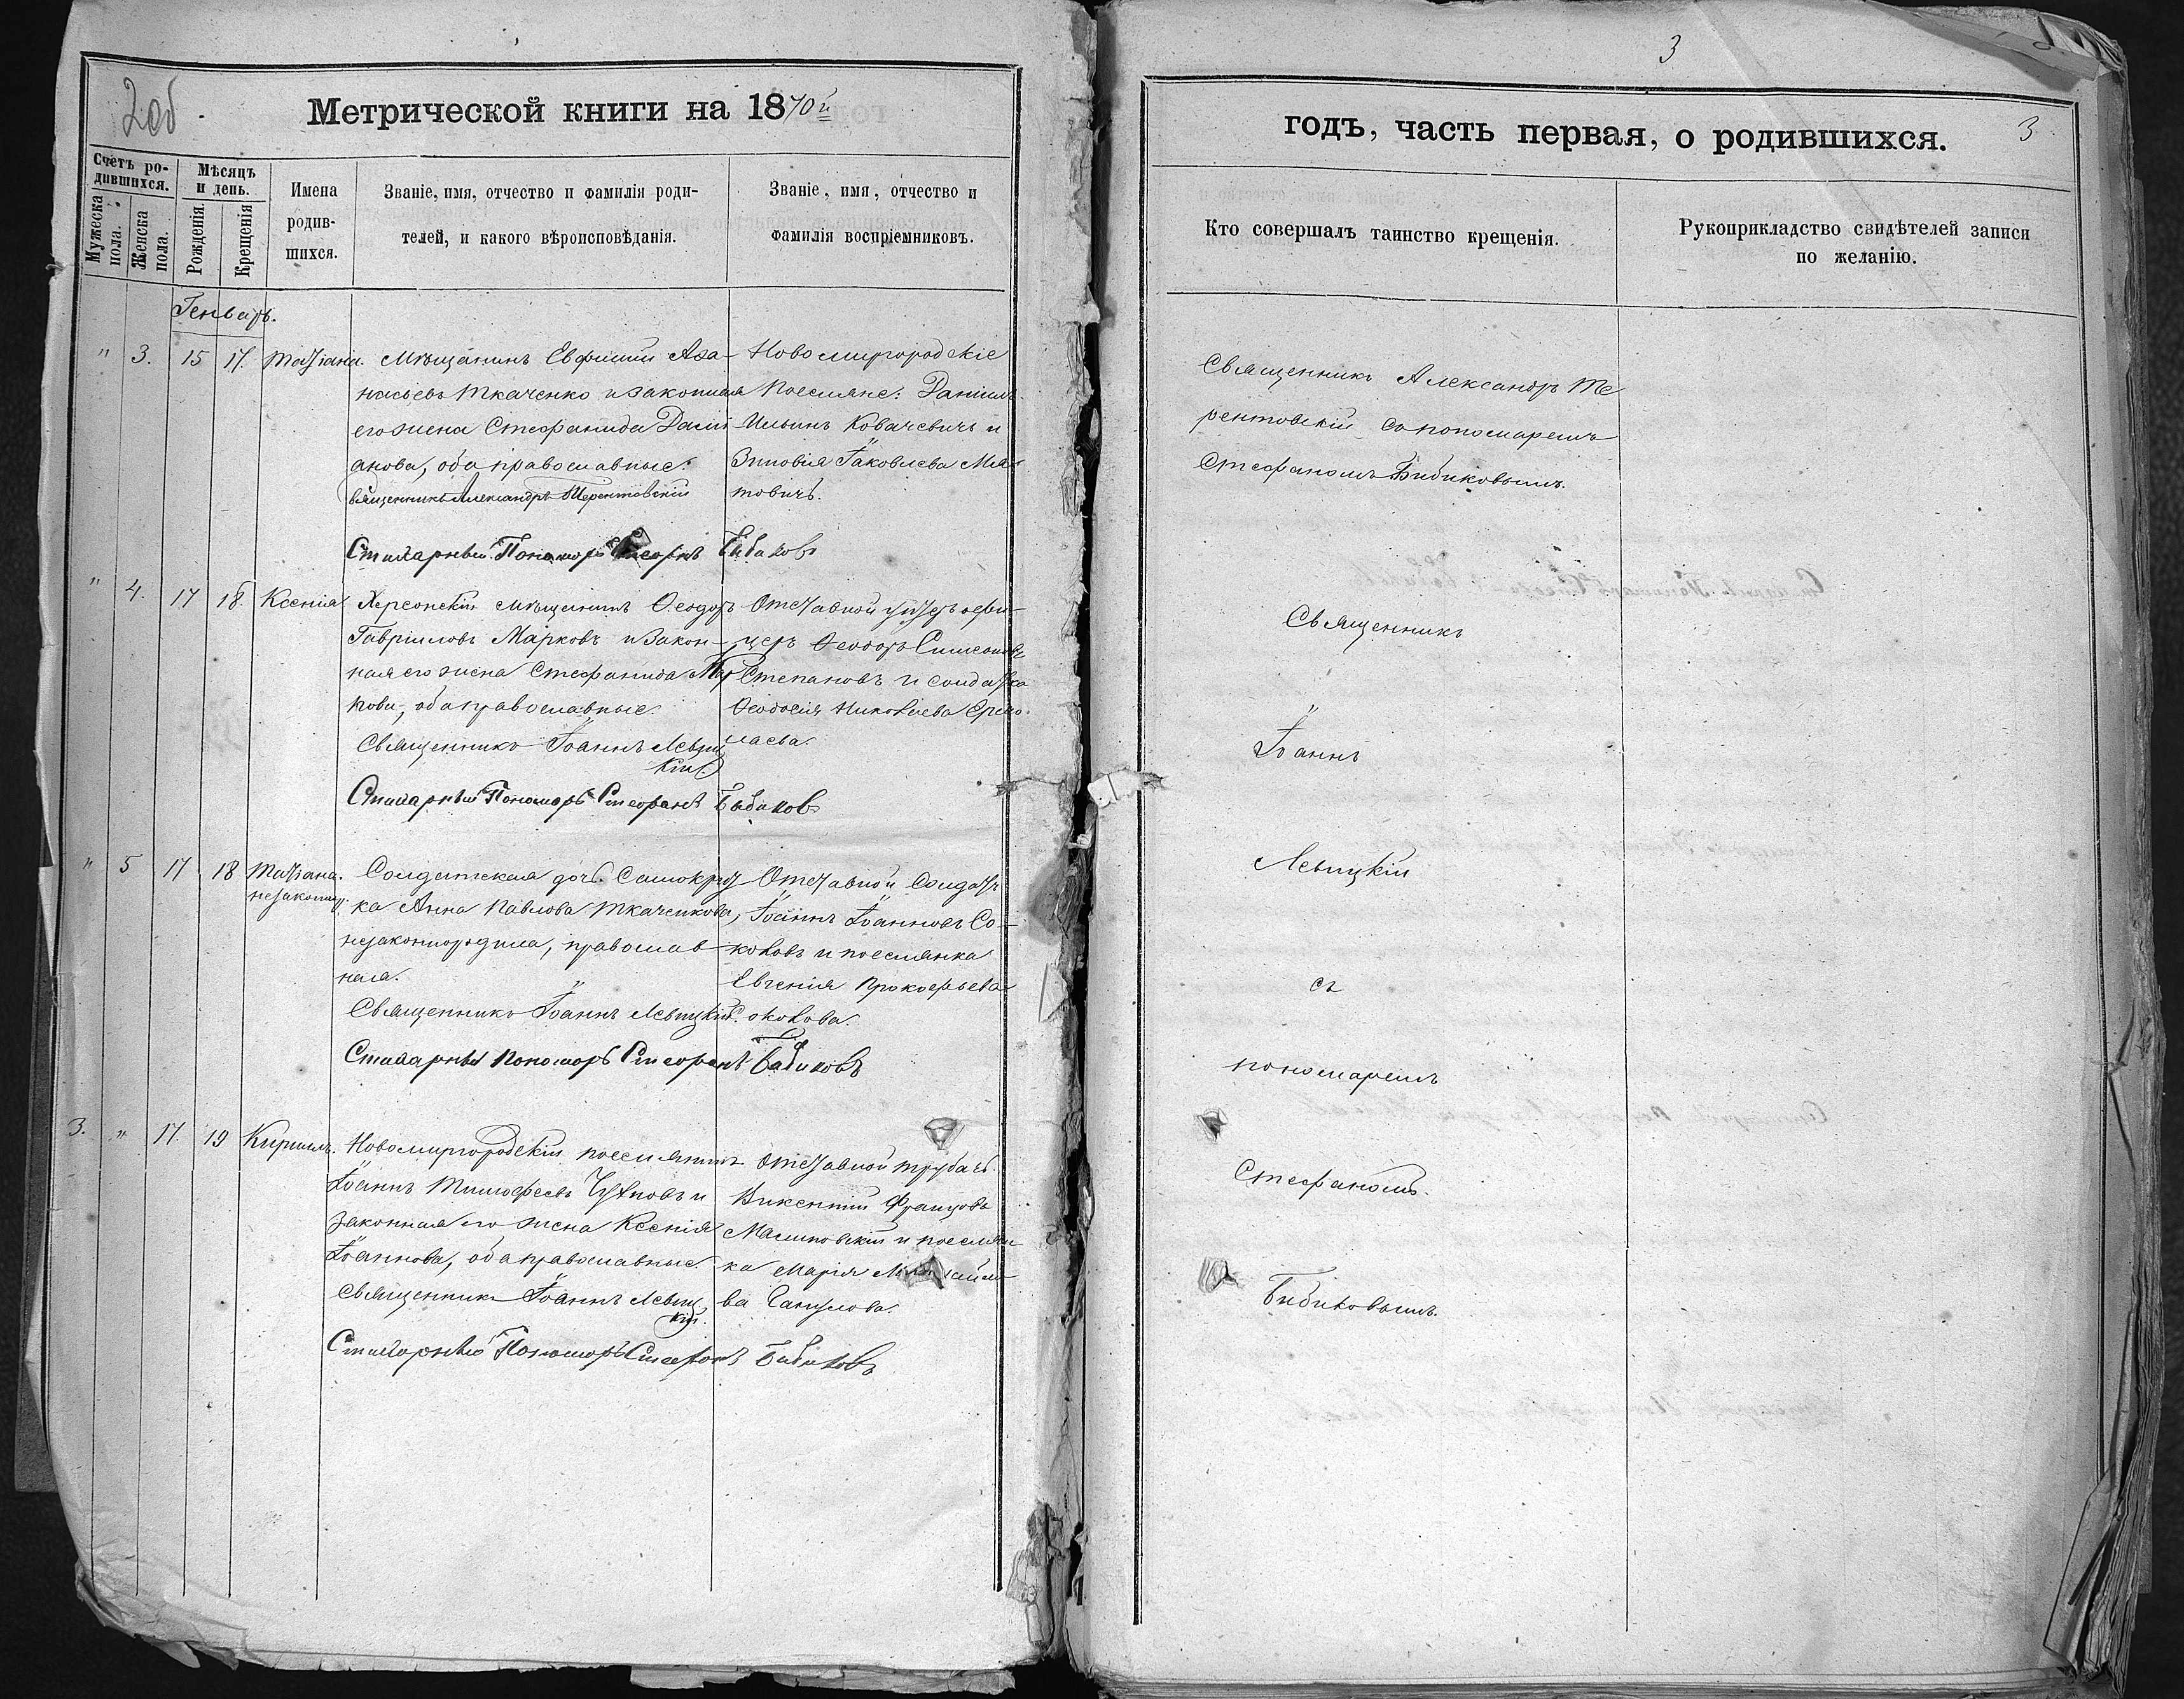 2об
Метрической книги на 1870й
Счетъ родившихся.
Мужеска пола.
Женска пола.
Мѣсяцъ и день.
Рожденія.
Крещенія
Имена родившихся.
Званіе, имя, отчество и фамилія роди-
телей, и какого вѣроисповѣданія.
Званіе, имя, отчество и
фамилія воспріемниковъ.
Генварь.
" 3. 15 17. Татіана.
Мѣщанинъ Евфимій Афа-
насьевъ Ткаченко и законная
его жена Стефанида Дамі-
анова, оба православные.
Священникъ Александръ Терентовскій
Новомиргородскіе
Поселяне: Даніилъ
Ильинъ Ковачевичъ и
Зиновія Іаковлева
товичъ.
Стихарный Пономарь Стефанъ Бибиковъ
" 4. 17 18. Ксенія
Херсонскій мѣщанинъ Ѳеодоръ
Гавріиловъ Марковъ и закон-
ная его жена Стефанида
кова, оба православные.
Священникъ Іоаннъ Левиц
кій.
Отставной унтеръ офи-
церъ Ѳеодоръ Симеоновъ
Степановъ и солдатка
Ѳеодосія Николаева Ермо-
лаева.
Стихарный Пономарь Стефанъ Бибиковъ
" 5 17 18 Татіана.
незаконнор.
Солдатская дочь Самокрут
ка Анна Павлова Ткаченкова,
незаконнорожденна, православ
ная.
Священникъ Іоаннъ Левицкій.
Отставной Солдатъ
Іоаннъ Іоанновъ Со-
коловъ и поселянка
Евгенія Прокофьева
Стихарный Пономарь Стефанъ Бибиковъ
3. " 17. 19 Кириллъ.
Новомиргородскій поселянинъ
Іоаннъ Тимофеевъ и
законная его жена Ксенія
Іоаннова, оба православные.
Священникъ Іоаннъ Левиц
кій.
Отставной трубачъ
Викентій Францовъ
Малиновскій и поселян
ка Марія
ва
Стихарный Пономарь Стефанъ Бибиковъ
3
годъ, часть первая, о родившихся.
3
Кто совершалъ таинство крещенія.
Рукоприкладство свидѣтелей записи
по желанію.
Священникъ Александръ Те
рентовскій съ пономаремъ
Стефаномъ Бибиковымъ.
Священникъ
Іоаннъ
Левицкій
съ
пономаремъ
Стефаномъ.
Бибиковымъ.